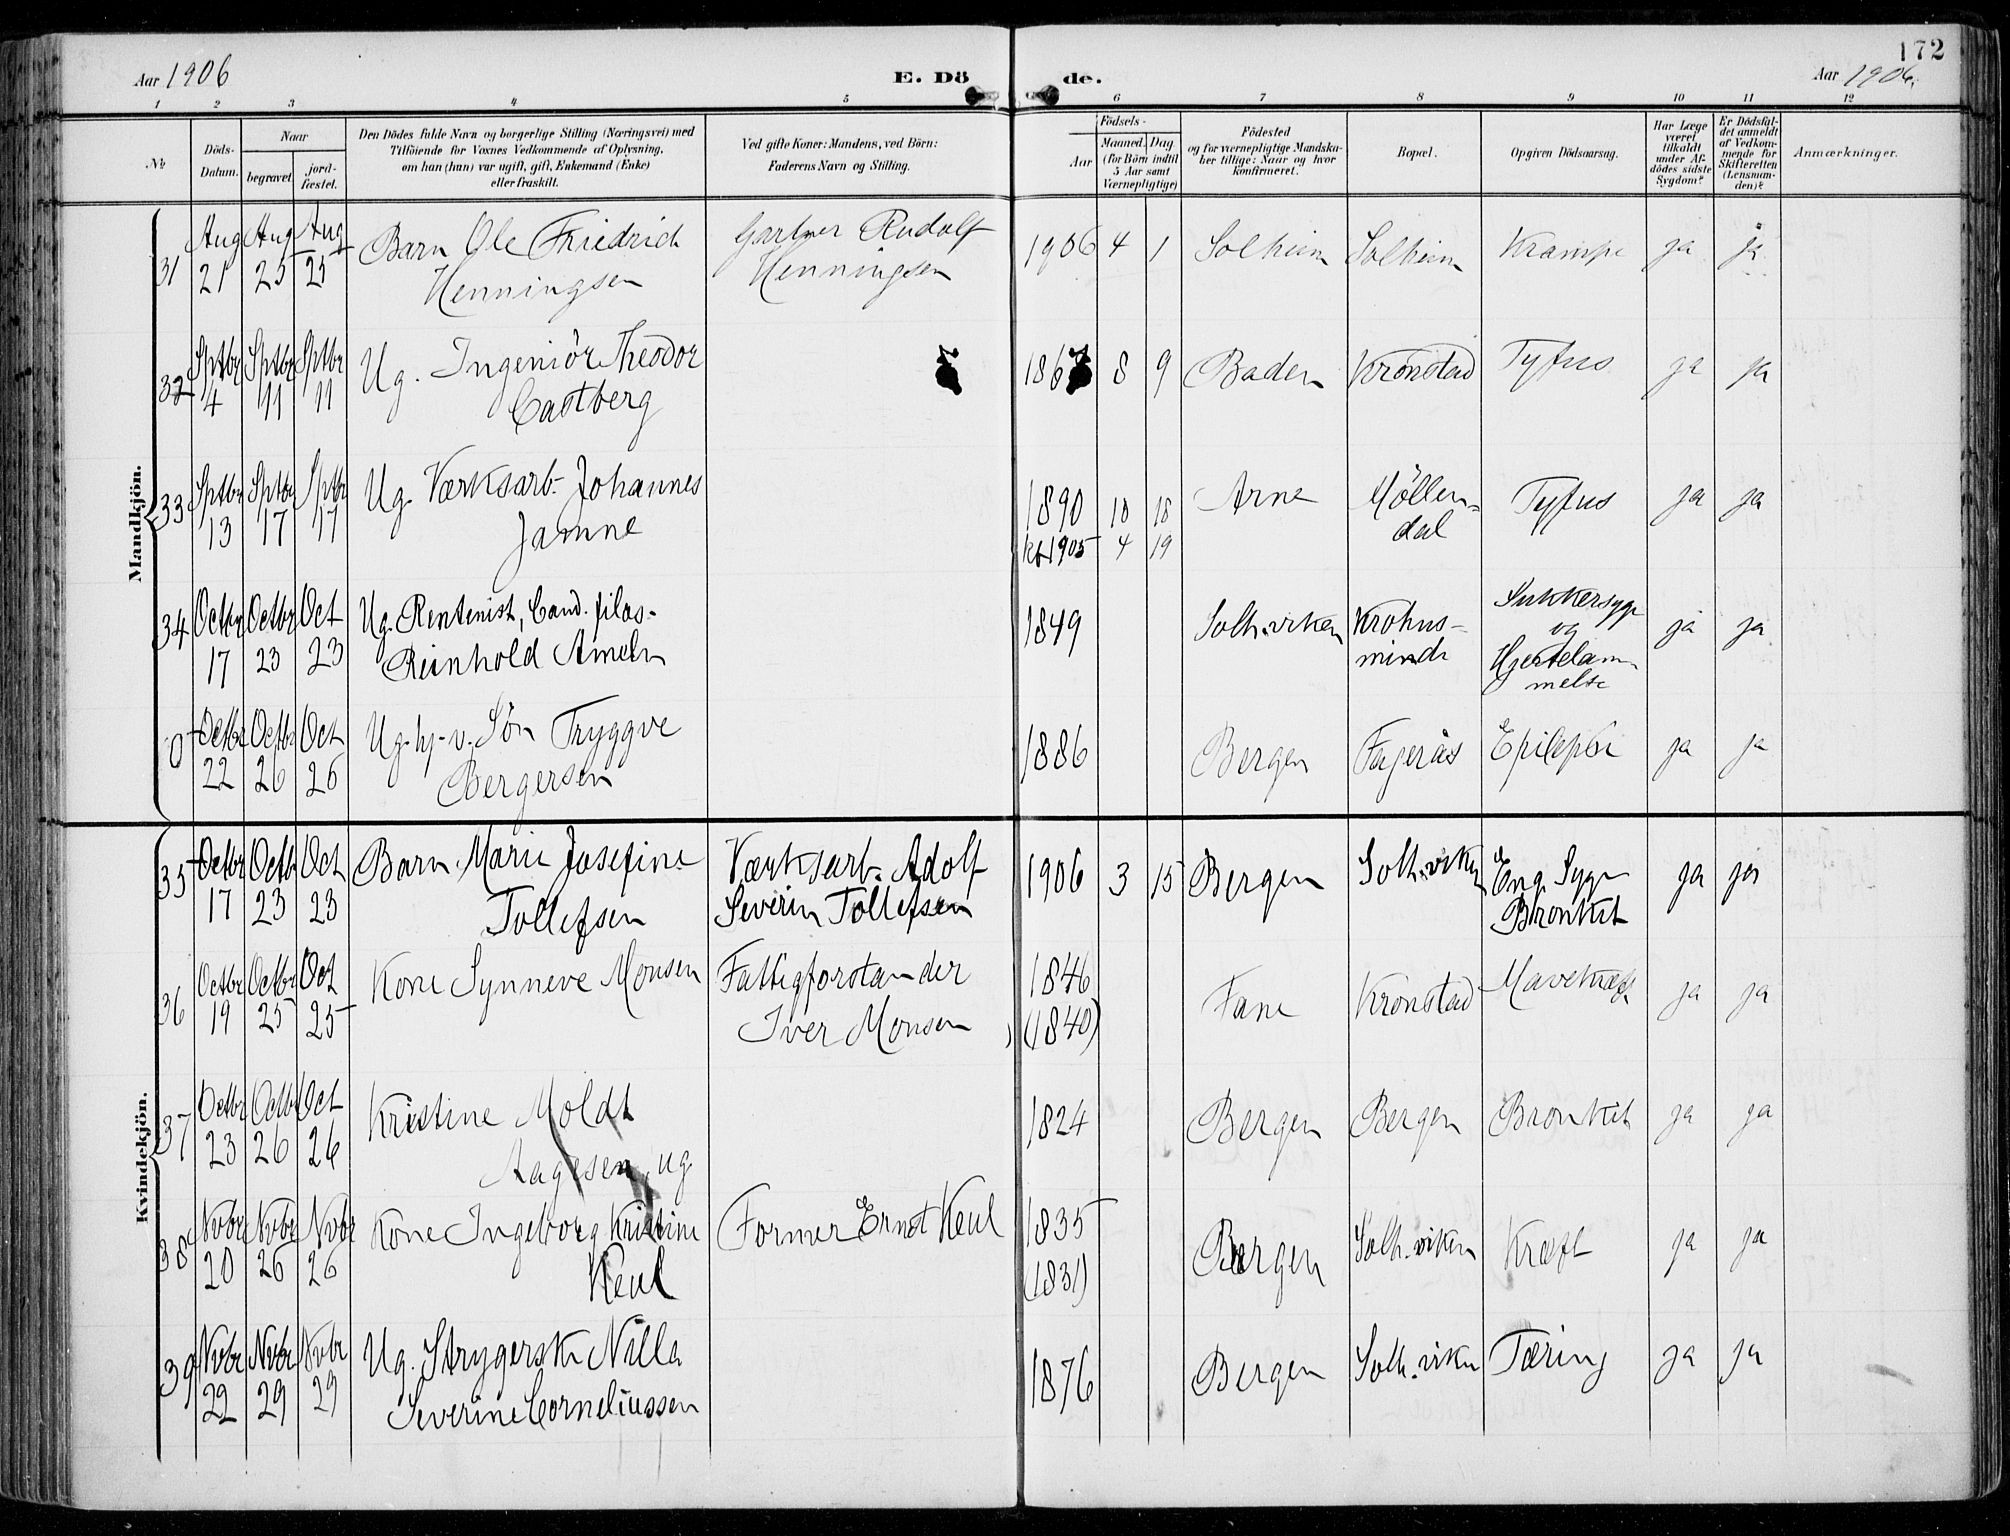 172
Aar 1906 E. Dö de. Aar 1906.
1 2 3 4 5 6 7 8 9 10 11 12
No
Döds-Datum.
Naar
begravet
jord-fæstet.
Den Dödes fulde Navn og borgerlige Stilling (Næringsvei) med
Tilföiende for Voxnes Vedkommende af Oplysning,
om han (hun) var ugift, gift, Enkemand (Enke)
eller fraskilt.
Ved gifte Koner: Mandens, ved Börn:
Faderens Navn og Stilling.
Födsels-
Aar
Maaned. Dag
(for Börn indtil
5 Aar samt
Værnepligtige)
Födested
og for værnepligtige Mandska-
ber tillige: Naar og hvor
konfirmeret.
Bopæl.
Opgiven Dödsaarsag.
Har Læge
været
tilkaldt
under Af-
dödes sidste
Sygdom?
Er Dödsfal-
det anmeldt
af Vedkom-
mende for
Skifteretten
(Lensman-
den)?
Anmærkninger.
Mandkjön.
31 Aug 21 Aug 25 Aug 25 Barn Ole Friedrich Gartner Rudolf 1906 4 1 Solheim Solheim Krampe ja ja
Henningsen Henningsen
32 Sptbr 4 Sptbr 11 Sptbr 11 Ug. Ingeniör Theodor 186 8 9 Baden Kronstad Tyfus ja ja
Castberg
33 Sptbr 13 Sptbr 17 Sptbr 17 Ug. Værksarb. Johannes 1890 10 18 Arne Möllen- Tyfus ja ja
Jamne kf 1905 4 19 dal
34 Octbr 17 Octbr 23 Oct 23 Ug. Rentenist, Cand. filos. 1849 Solh.viken Krohns- Sukkersyge ja ja
Reinhold Ameln minde og
Hjertelam-
melse
0 Octbr 22 Octbr 26 Oct 26 Ug. hj. v. Sön Tryggve 1886 Bergen Fagerås Epilepsi ja ja
Bergersen
Kvindekjön.
35 Octbr 17 Octbr 23 Oct 23 Barn Marie Josefine Værksarb. Adolf 1906 3 15 Bergen Solh.viken Eng. Syge ja ja
Tollefsen Severin Tollefsen Bronkit
36 Octbr 19 Octbr 25 Oct 25 Kone Synneve Monsen Fattigforstander 1846 Fane Kronstad Mavekræft ja ja
Iver Monsen (1840)
37 Octbr 23 Octbr 26 Oct 26 Kristine Moldt 1824 Bergen Bergen Bronkit ja ja
Aagesen, ug
38 Novbr 20 Novbr 26 Novbr 26 Kone Ingeborg Kristine Former Ernst Keul 1835 Bergen Solh.viken Kræft ja ja
Keul (1831)
39 Novbr 22 Novbr 29 Novbr 29 Ug. Strygerske Nilla 1876 Bergen Solh.viken Tæring ja ja
Severine Corneliussen